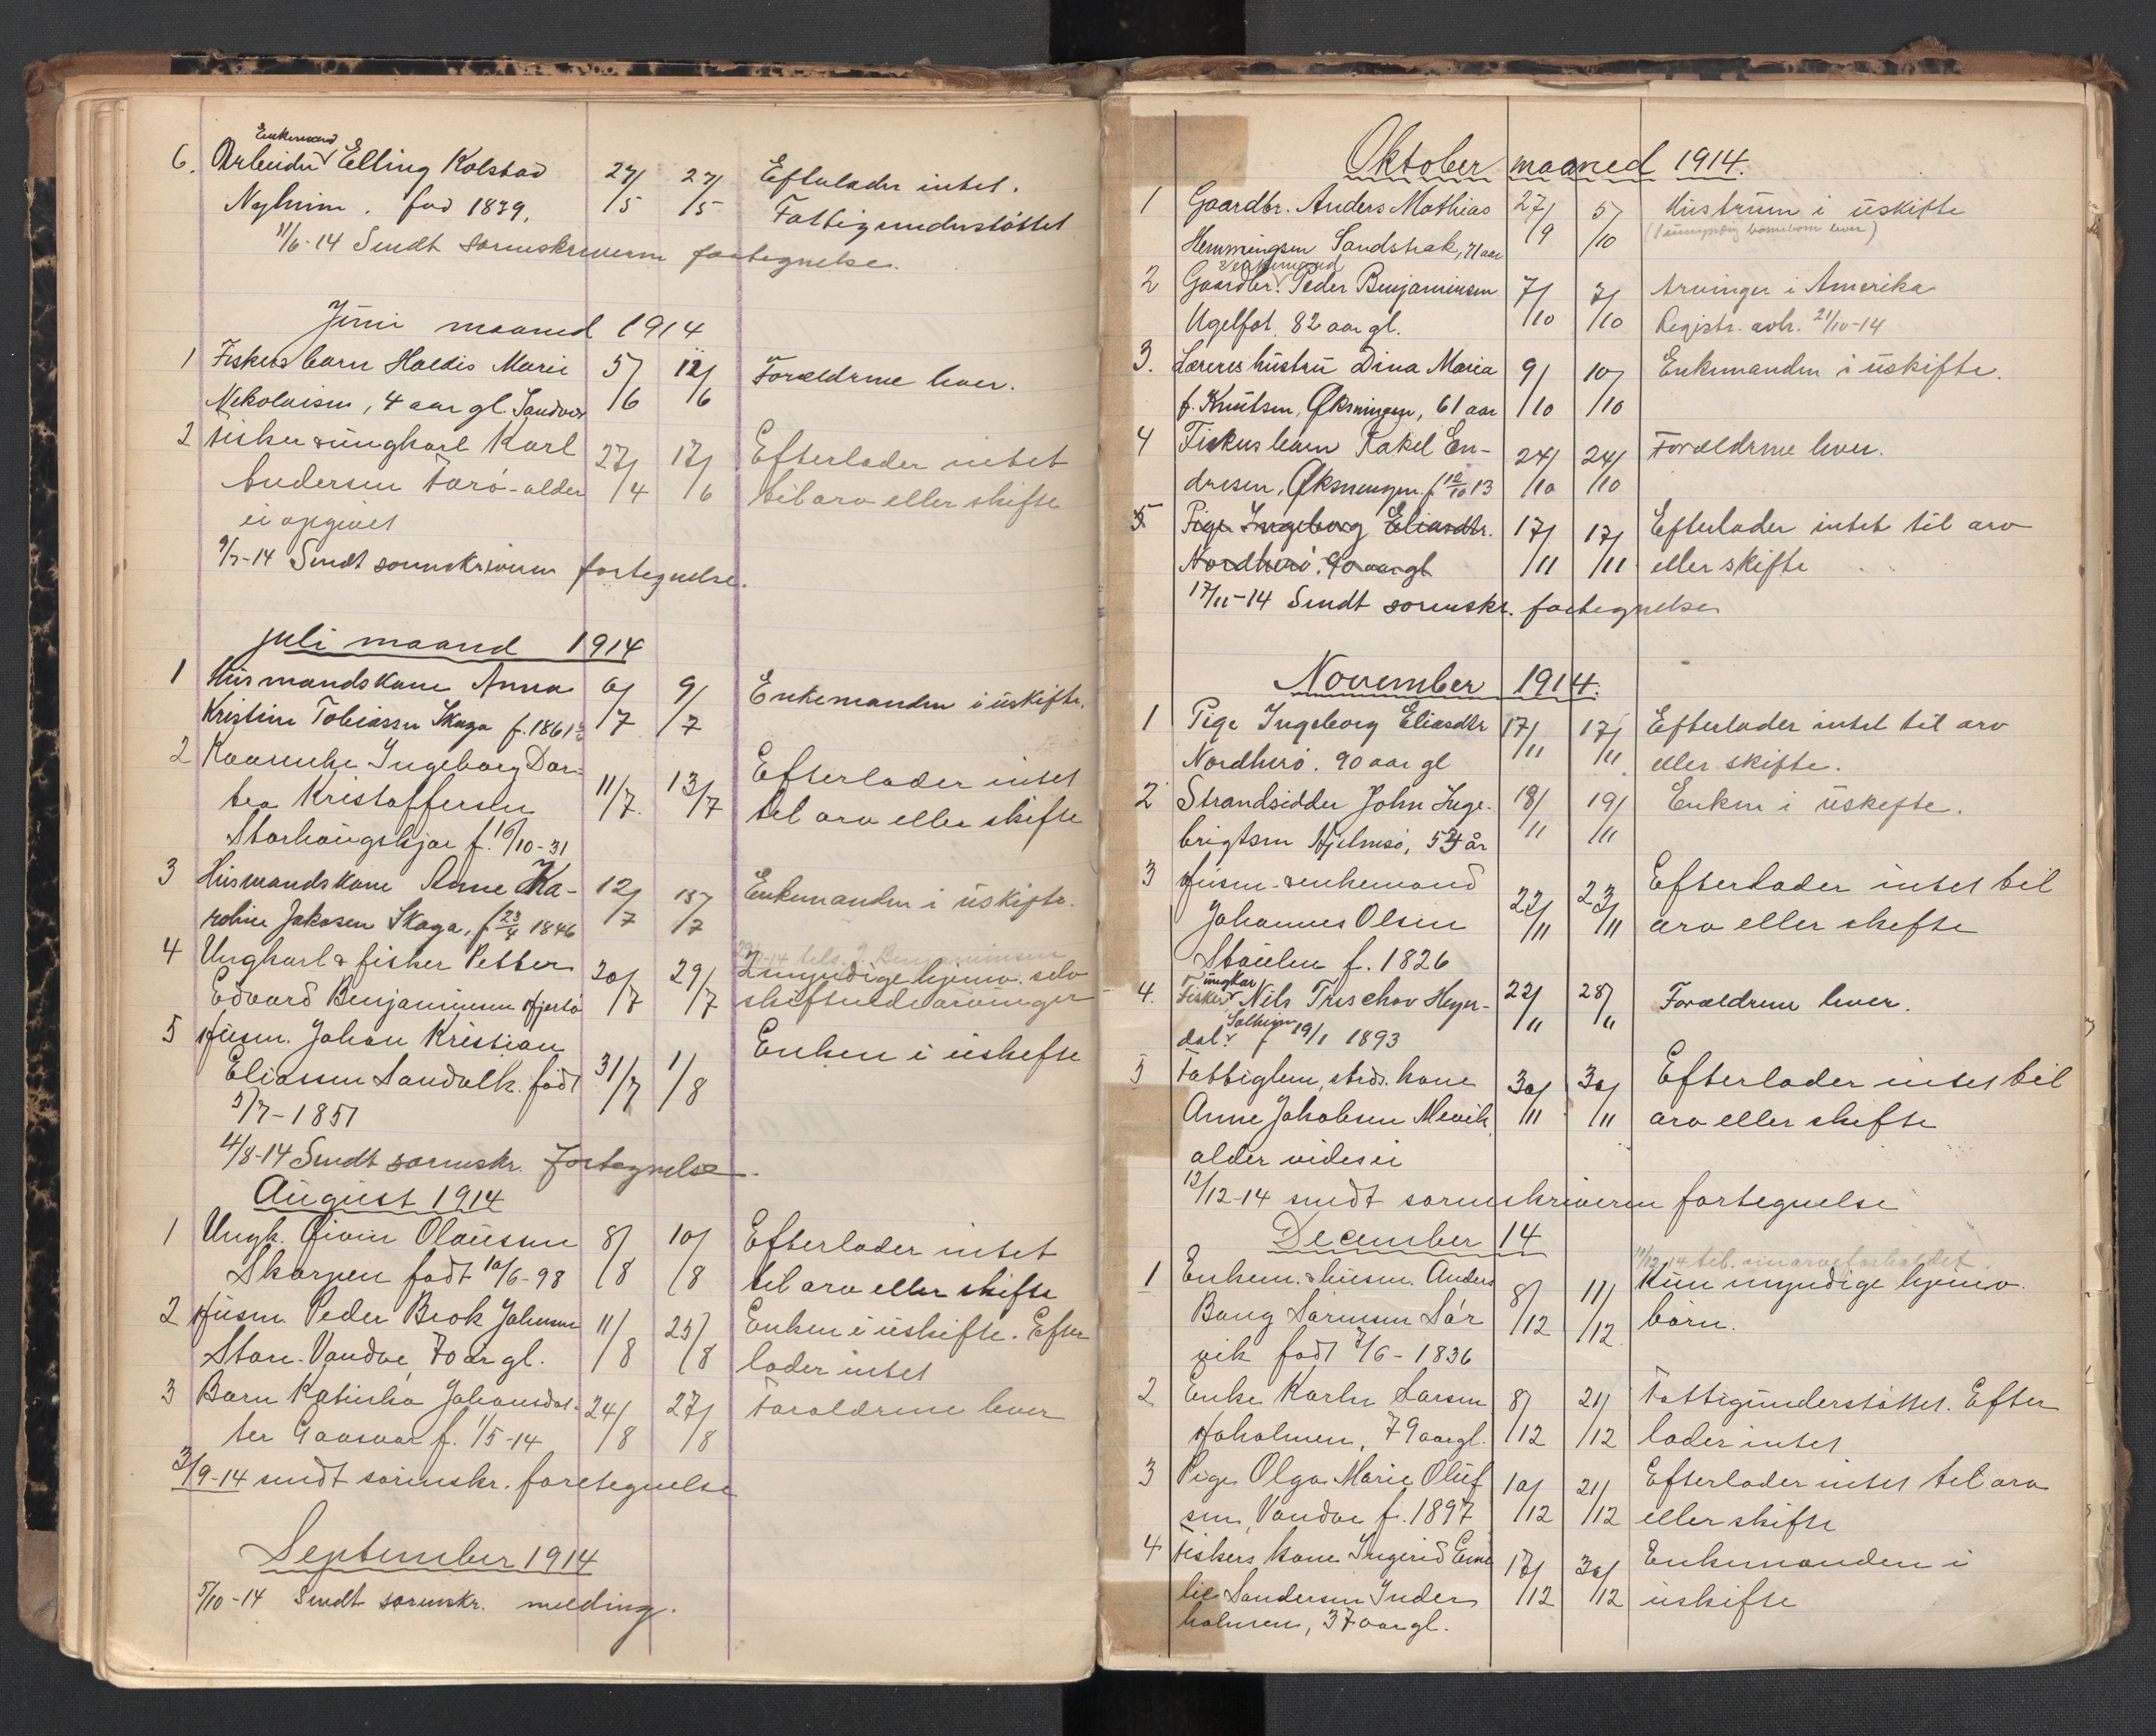 Enkemand
6. Arbeider Elling Kolstad 27/5 27/5 Efterlader intet.
Nyheim. fød 1839. Fattigunderstöttet
11/6-14 Sendt sorenskriveren fortegnelse.
Juni maaned 1914
1 Fiskers barn Haldis Marie 5/6 12/6 Forældrene lever.
Nikolaisen, 4 aar gl. Sandvær
2 Fisker & ungkarl Karl 27/4 17/6 Efterlader intet
Andersen Farö - alder til arv eller skifte
ei opgivet
9/7-14 Sendt sorenskriveren fortegnelse.
Juli maaned 1914
1 Husmandskone Anna 6/7 9/7 Enkemanden i uskifte.
Kristine Tobiassen Skaga f. 1861
2 Kaarenke Ingeborg Dor- 11/7 13/7 Efterlader intet
tea Kristoffersen til arv eller skifte
Storhaugskjær f. 16/10-31
3 Husmandskone Anne Ka- 12/7 15/7 Enkemanden i uskifte.
roline Jakosen Skaga, f 23/4 1846
4 Ungkarl & fisker Petter 20/7 29/7 2 myndige hjemv. selv
Edvard Benjaminsen Hjartö skiftende arvinger
5 Husm. Johan Kristian 31/7 1/8 Enken i uskifte
Eliassen Sandvik. født
5/7-1851
4/8-14 Sendt sorenskr. fortegnelse.
August 1914
1 Ungk. Eivin Olausen 8/8 10/8 Efterlader intet
Skarpen født 10/6-98 til arv eller skifte
2 Husm. Peder Brok Johnsen 11/8 25/8 Enken i uskifte. Efter
Stor-Vandve, 70 år gl. lader intet
3 Barn Katinka Johansdat- 24/8 27/8 Forældrene lever
ter Gaasvær f. 1/5-14
3/9-14 sendt sorenskr. foretegnelse
September 1914
5/10-14 Sendt sorenskr. melding.
Oktober maaned 1914.
1 Gaardbr. Anders Mathias 27/9 5/10 Hustruen i uskifte
Hemmingsen Sandstrak, 71 aar (1 umyndig barnebarn lever)
Enkemand
2 Gaardbr. Peder Benjaminsen 7/10 7/10 Arvinger i Amerika
Ugelfot. 82 aar gl. Registr. avh. 21/10-14
3. Læreres hustru Dina Maria 9/10 10/10 Enkemanden i uskifte.
f. Knutsen, Øksningen, 61 aar
4 Fiskers barn Rakel En- 24/10 24/10 Forældrene lever.
dresen, Øksningen. f 12/10 13
5 Pige Ingeborg Eliasdtr. 17/11 17/11 Efterlader intet til arv
Nordherö. 90 aar gl eller skifte
17/11-14 Sendt sorenskr. fortegnelse
November 1914.
1 Pige Ingeborg Eliasdtr 17/11 17/11 Efterlader intet til arv
Nordherö. 90 aar gl eller skifte.
2 Strandsidder John Inge- 18/11 19/11 Enken i uskifte.
brigtsen Hjelmsö, 54 år
3 Husm. & enkemand 22/11 23/11 Efterlader intet til
Johannes Olsen arv eller skifte
Staulen f. 1826
ungkar
4. Fisker Nils Treschov Heger- 22/11 28/11 Forældrene lever.
dal. Solheim f 19/1 1893
5 Fattiglem, kone 30/11 30/11 Efterlader intet til
Anne Jakobsen Mevik, arv eller skifte
alder vides ei
12/12-14 sendt sorenskriveren fortegnelse
December 14
11/12-14 tel. om arveforholdet.
1 Enkem. & husm. Anders 8/12 11/12 Kun myndige hjemv.
Bang Sörensen Sör børn.
vik født 7/6-1836
2 Enke Karln Larsen 8/12 21/12 Fattigunderstöttet. Efter
Haholmen, 79 aar gl. lader intet
3 Pige Olga Marie Oluf 10/12 21/12 Efterlader intet til arv
sen, Vandve f. 1897 eller skifte
4 Fiskers kone Ingerid Emi 17/12 30/12 Enkemanden i
lie Sandersen Inder uskifte
holmen, 37 aar gl.